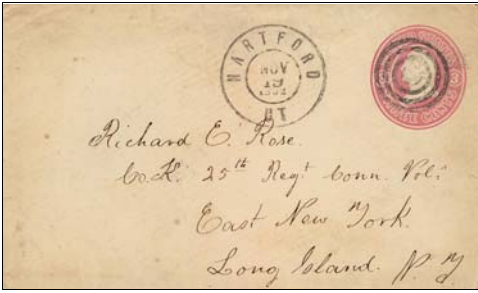 HARTFORD
NOV
19
1862
CT
3 3
THREE CENTS
Richard E. Rose.
Co. K. 25th Regt Conn. Vol:
East New York.
Long Island. N. Y